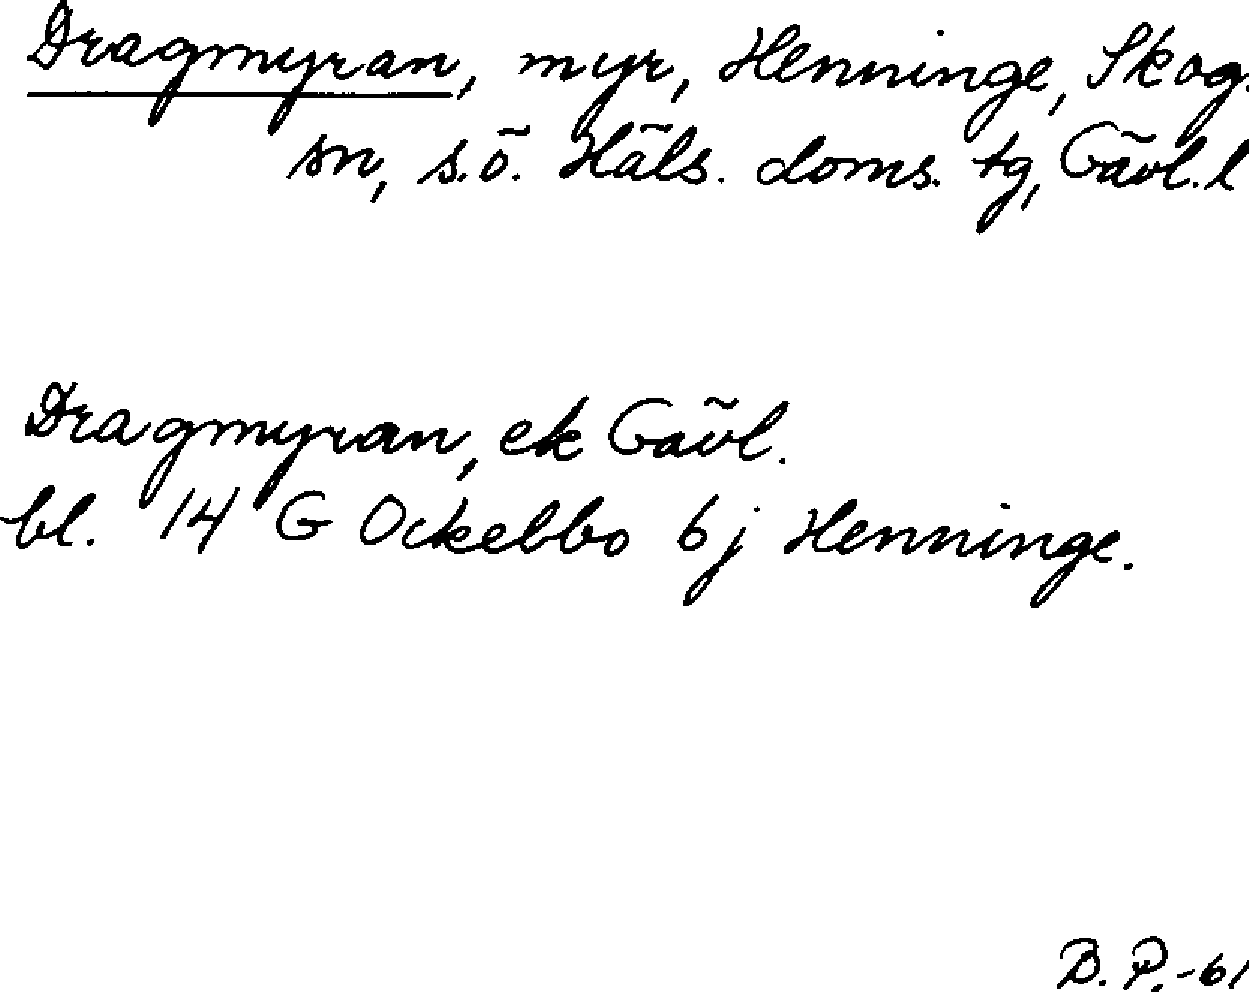 Dragmyran, myr, Henninge, Skog.
sn, s.ö. Häls. doms. tg, Gävl. l
Dragmyran, ek Gävl.
bl. 14 G Ockelbo 6j Henninge.
B. P. -61